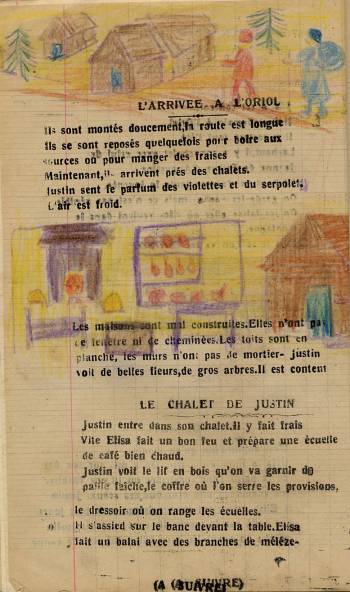 L'ARRIVEE A L'ORIOL
Ils sont montés doucement,la route est longue
Ils se sont reposés quelquefois pour boire aux
sources ou pour manger des fraises
Maintenant,ils arrivent prés des chalets.
Justin sent le parfum des violettes et du serpolet.
L'air est froid.
Les maisons sont mal construites.Elles n'ont pas
de fenetre ni de cheminées.Les toits sont en
planche, les murs n'ont pas de mortier- justin
voit de belles fleurs,de gros arbres.Il est content
LE CHALET DE JUSTIN
Justin entre dans son chalet.il y fait frais
Vite Elisa fait un bon feu et prépare une écuelle
de café bien chaud.
Justin voit le lit en bois qu'on va garnir de
paille faîche,le coffre où l'on serre les provisions,
le dressoir où on range les écuelles.
Il s'assied sur le banc devant la table.Elisa
fait un balai avec des branches de méléze-
(A SUIVRE)